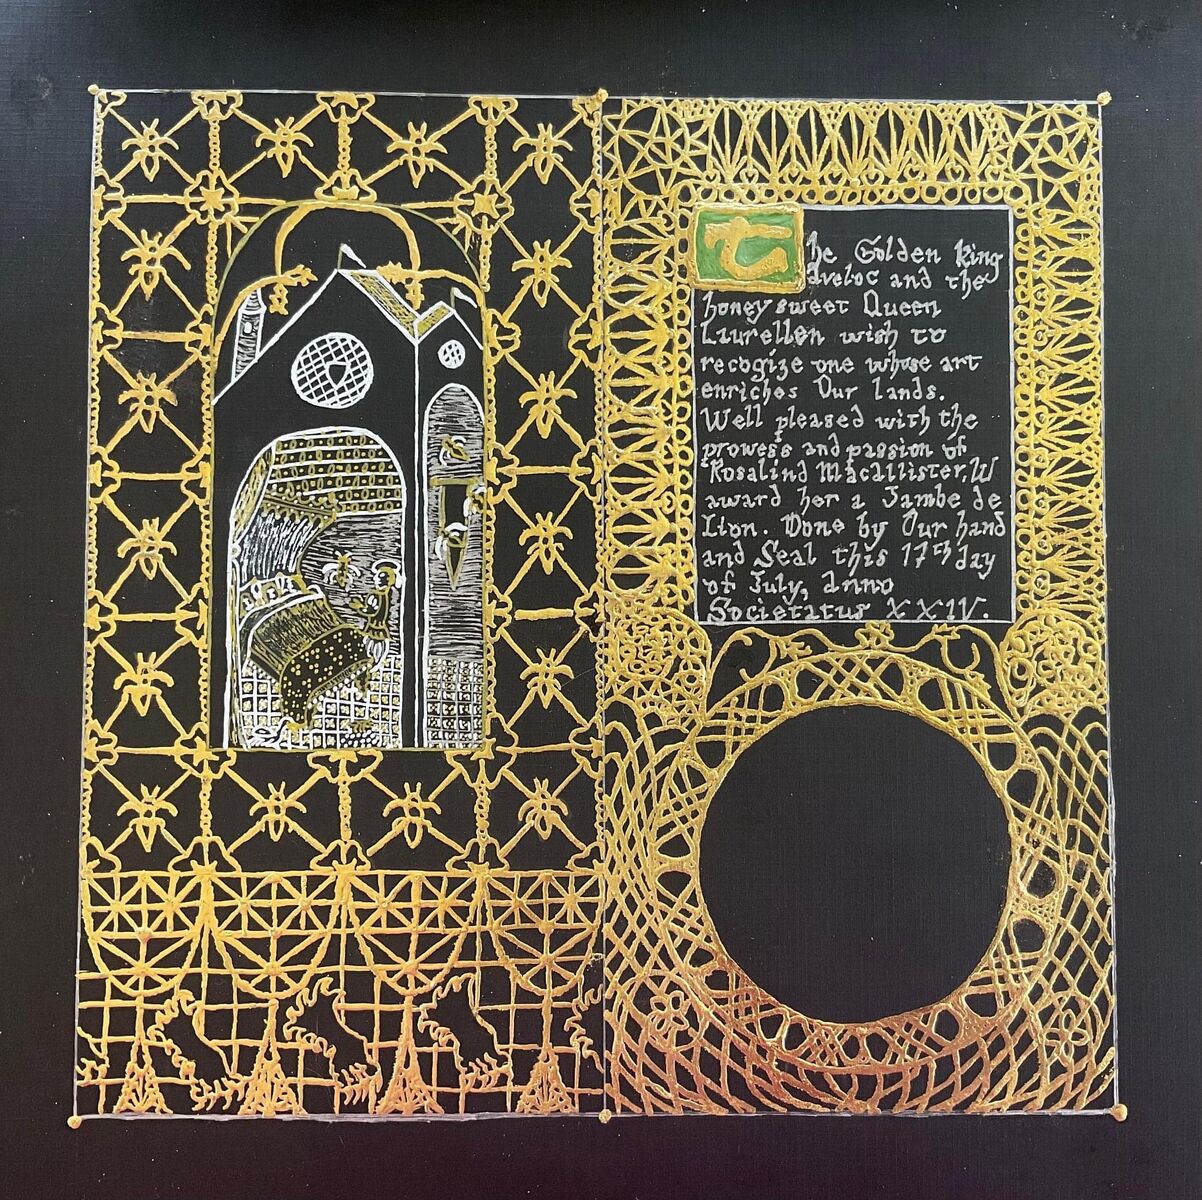 The Golden King
Aveloc and the
honey sweet Queen
Laurellen wish to
recogize one whose art
enriches Our lands.
Well pleased with the
prowess and passion of
Rosalind Macallister, W
award her a Jambe de
Lion. Done by Our hand
and Seal this 17th day
of July, Anno
Societatus XXIV.